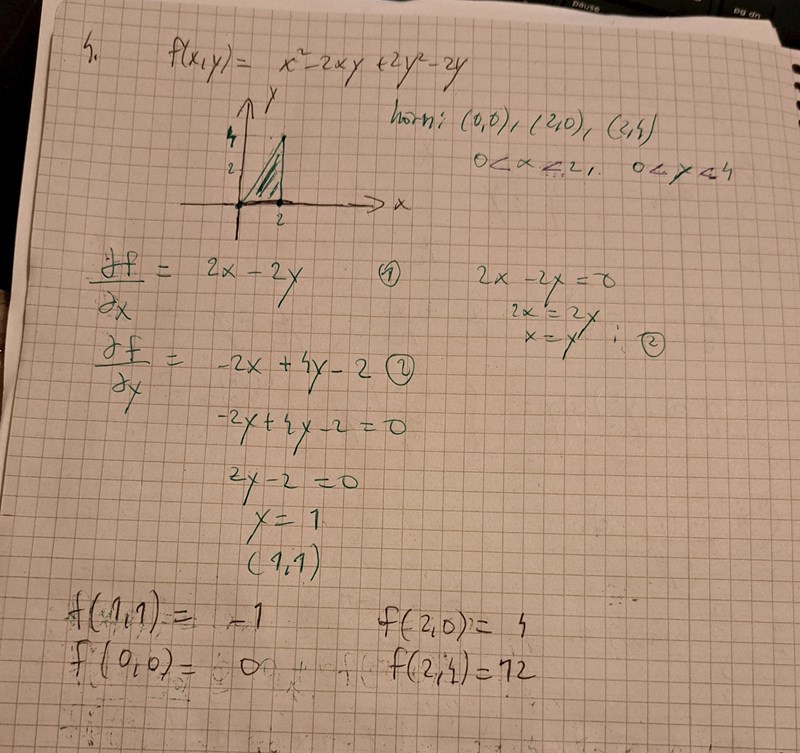 4. f(x,y) = x²-2xy+2y²-2y
y
4
2
x
2
hörn: (0,0), (2,0), (2,4)
0<x<2, 0<y<4
∂f/∂x = 2x-2y ①
2x-2y=0
2x=2y
x=y i ②
∂f/∂y = -2x+4y-2 ②
-2y+4y-2=0
2y-2=0
y=1
(1,1)
f(1,1) = -1
f(2,0) = 4
f(0,0) = 0
f(2,4) = 12
pause
pg dn